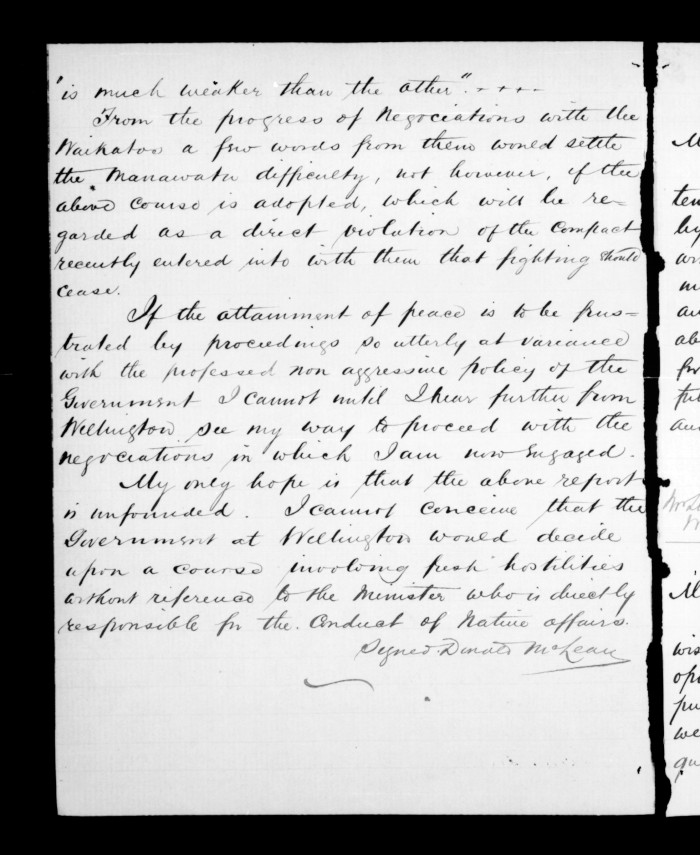 "is much weaker than the other". + + + +
From the progress of Negociations with the
Waikatos a few words from them would settle
the Manawatu difficulty, not however, if the
above course is adopted, which will be re-
garded as a direct violation of the compact
recently entered into with them that fighting should
cease.
If the attainment of peace is to be frus=
trated by proceedings so utterly at variance
with the professed non aggressive policy of the
Government I cannot until I hear further from
Wellington see my way to proceed with the
negociations in which I am now engaged.
My only hope is that the above report
is unfounded. I cannot conceive that the
Government at Wellington would decide
upon a course involving fresh hostilities
without reference to the Minister who is directly
responsible for the conduct of Native affairs.
Signed. Donald McLean
M
ten
by
ab
wis
we